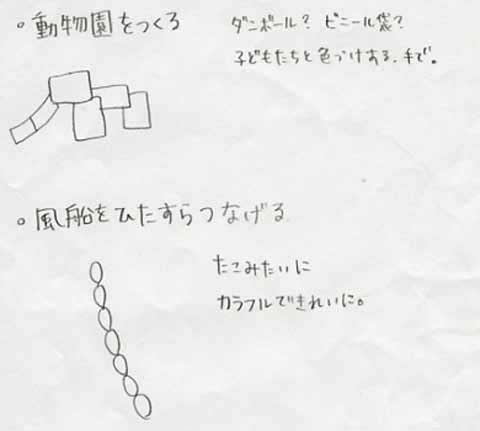 。動物園をつくろ
ダンボール？ ビニール袋？
子どもたちと色づけする、手で。
。風船をひたすらつなげる
たこみたいに
カラフルできれいに。